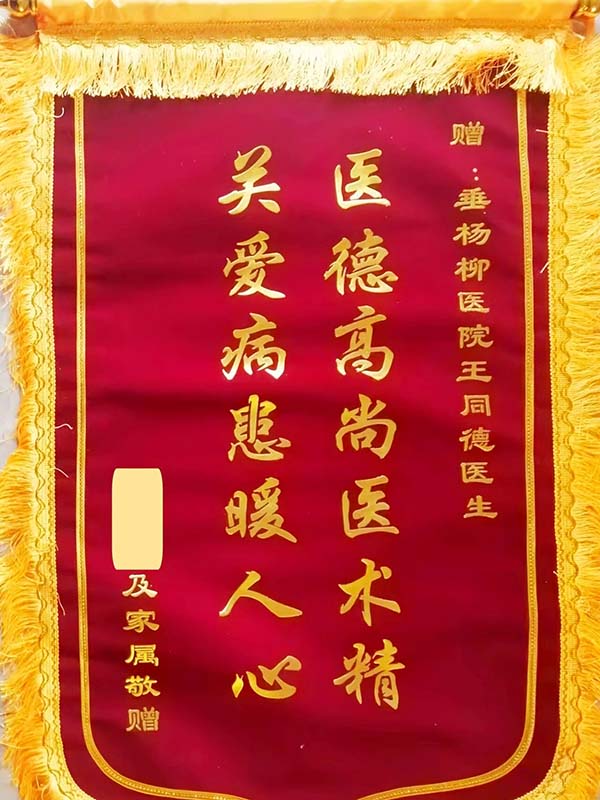 赠：垂杨柳医院王同德医生
医德高尚医术精
关爱病患暖人心
及家属敬赠